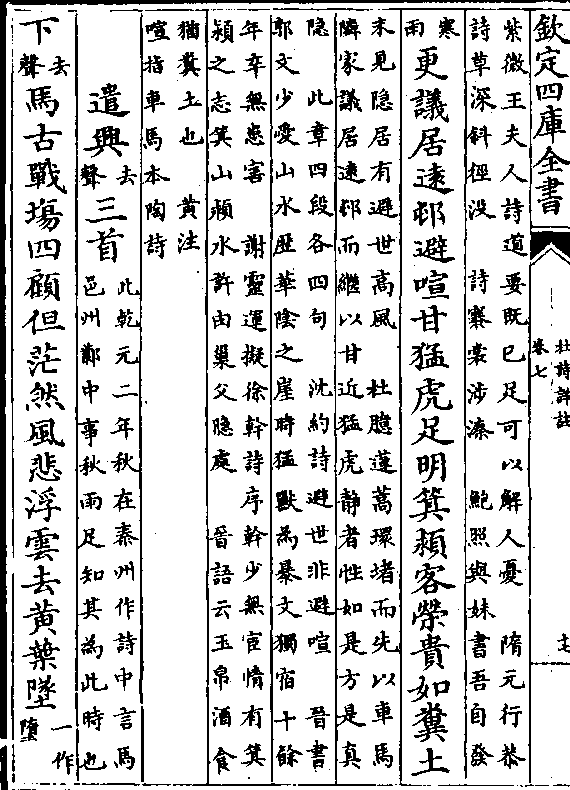 欽定四庫全書
杜詩詳註
卷七
十七
紫微王夫人詩道要既已足可以解人憂　隋元行恭
詩草深斜徑没　詩褰裳涉溱　鮑照與妹書吾自發
寒
雨
更議居逺邨避喧甘猛虎足明箕潁客榮貴如糞土
末見隐居有避世高風　杜臆蓬蒿環堵而先以車馬
隣家議居逺邨而繼以甘近猛虎静者性如是方是真
隐　此章四段各四句　沈約詩避世非避喧　晉書
郭文少愛山水歴華陰之崖時猛獸為暴文獨宿十餘
年卒無患害　謝靈運擬徐幹詩序幹少無宦情有箕
潁之志箕山潁水許由巢父隐處　晉語云玉帛酒食
猶糞土也　黄注
喧指車馬本陶詩
遣興去聲三首
此乾元二年秋在秦州作詩中言馬
邑州鄴中事秋雨足知其為此時也
下去聲馬古戰塲四顧但茫然風悲浮雲去黄葉墜一作墮